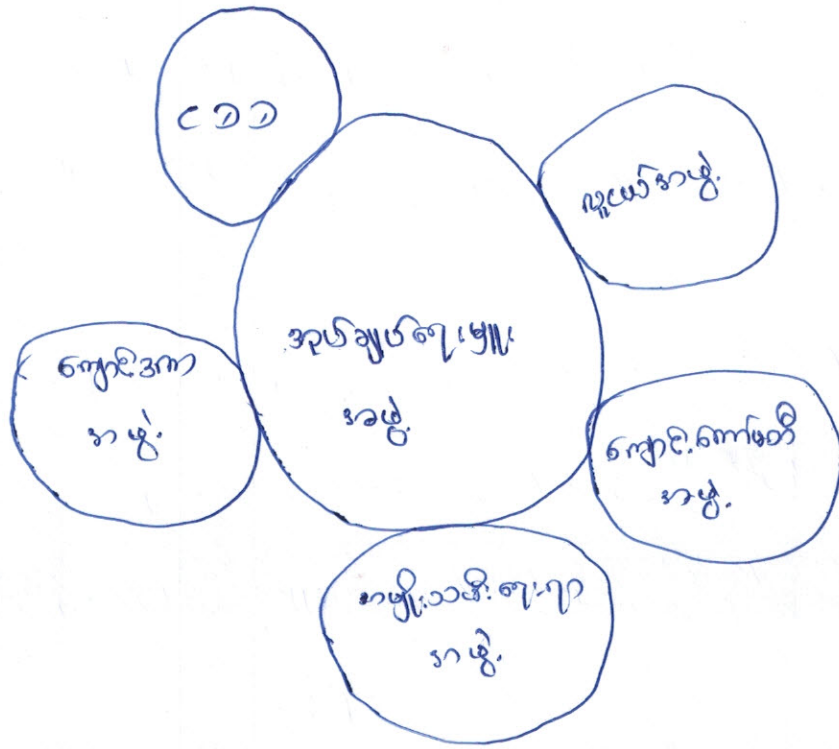 လူငယ်အဖွဲ့
အုပ်ချုပ်ရေးမှူး
အဖွဲ့
ကျောင်းအကာ
အဖွဲ့
ကျောင်းကော်မတီ
အဖွဲ့
အမျိုးသမီးရေးရာ
အဖွဲ့